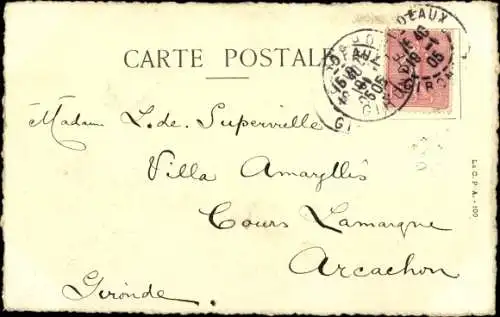 CARTE POSTALE
BORDEAUX
05
GIRONDE
Madame L. de Supervielle
Villa Amaryllis
Cours Lamarque
Arcachon
Gironde.
Le C. P. A. - 100